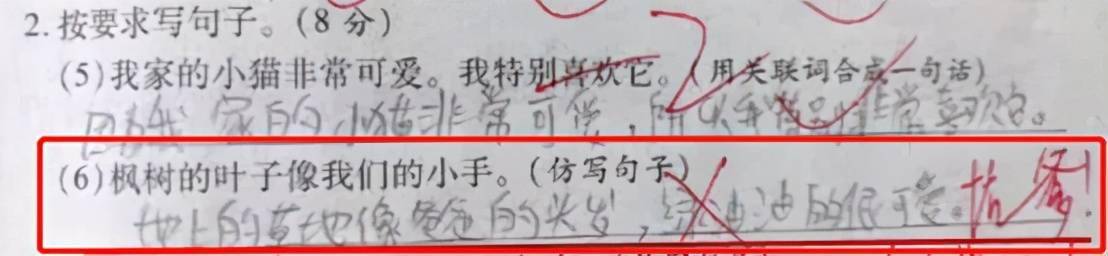 2.按要求写句子。(8分)
(5)我家的小猫非常可爱。我特别喜欢它。(用关联词合成一句话)
因为我家的小猫非常可爱,所以我特别非常喜欢它。
(6)枫树的叶子像我们的小手。(仿写句子)
地上的草地像爸爸的头发,绿油油的很可爱。